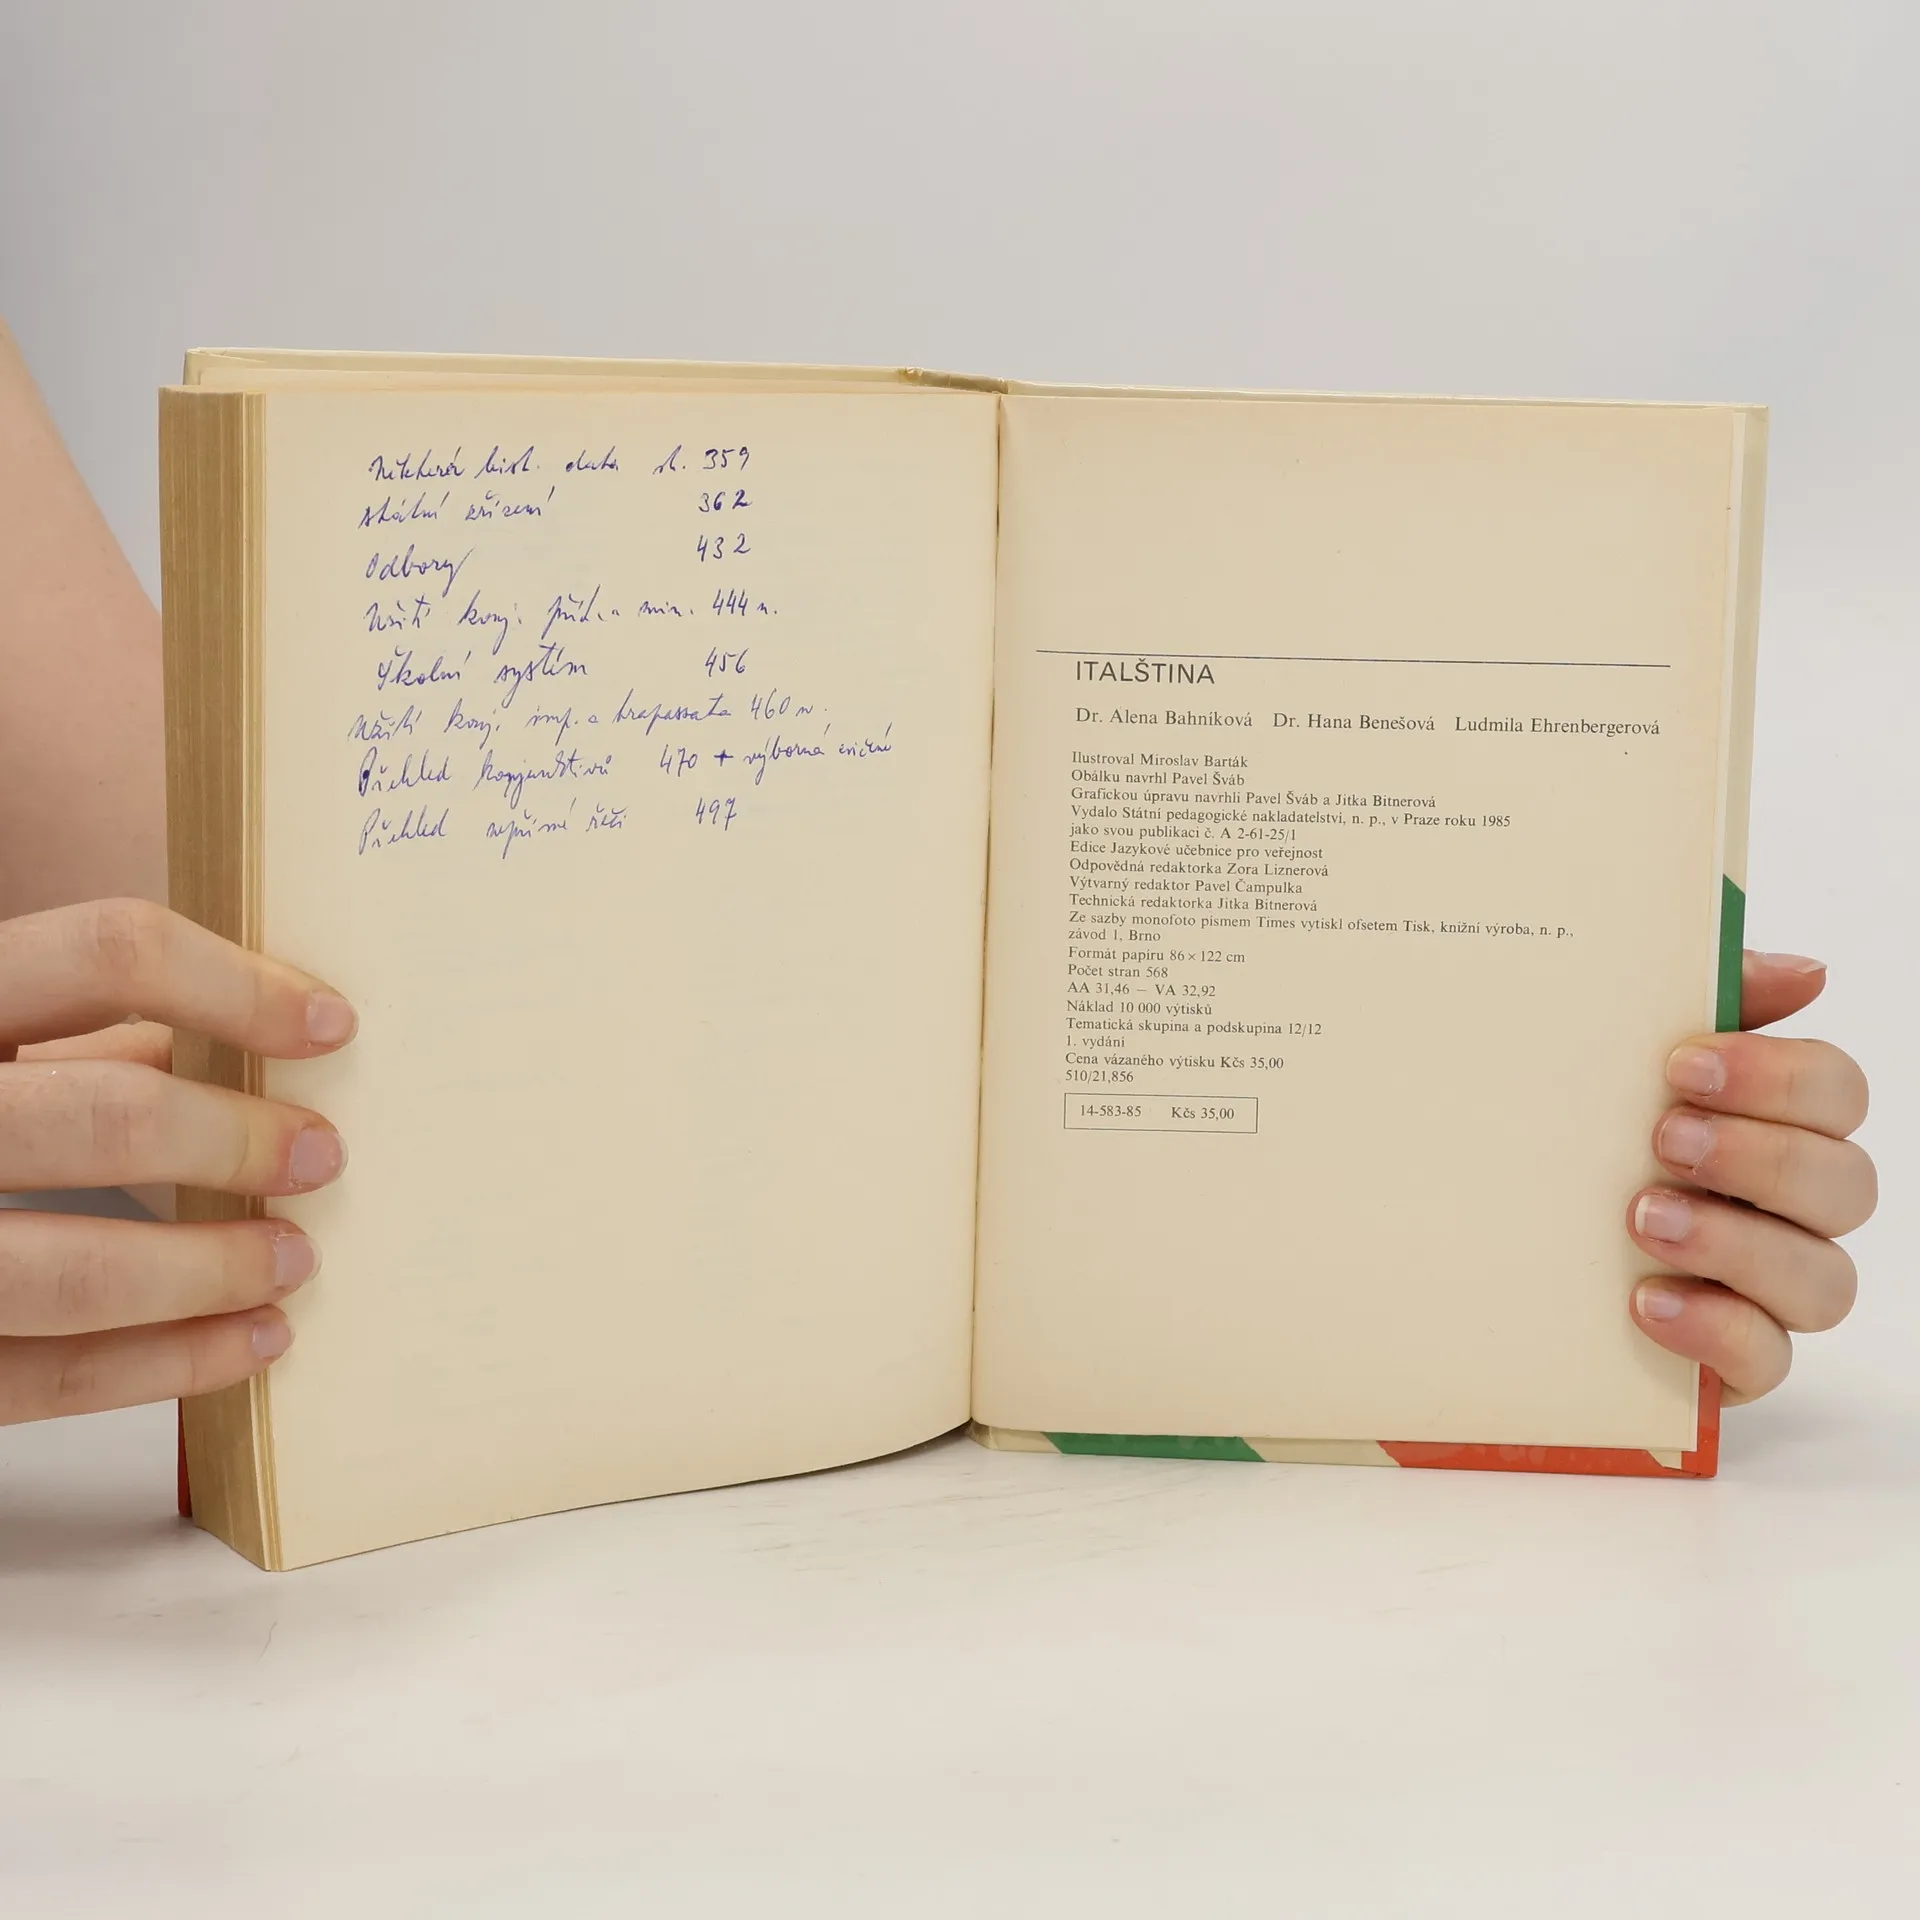 Některá hist. data st. 359
státní zřízení 362
Odbory 432
Užití konj. příd. a min. 444 n.
Školní systém 456
Užití konj. imp. a trapassata 460 n.
Přehled konjunktivů 470 + výborná cvičení
Přehled nepřímé řeči 497
ITALŠTINA
Dr. Alena Bahníková Dr. Hana Benešová Ludmila Ehrenbergerová
Ilustroval Miroslav Barták
Obálku navrhl Pavel Šváb
Grafickou úpravu navrhli Pavel Šváb a Jitka Bitnerová
Vydalo Státní pedagogické nakladatelství, n. p., v Praze roku 1985
jako svou publikaci č. A 2-61-25/1
Edice Jazykové učebnice pro veřejnost
Odpovědná redaktorka Zora Liznerová
Výtvarný redaktor Pavel Čampulka
Technická redaktorka Jitka Bitnerová
Ze sazby monofoto písmem Times vytiskl ofsetem Tisk, knižní výroba, n. p.,
závod 1, Brno
Formát papíru 86 × 122 cm
Počet stran 568
AA 31,46 — VA 32,92
Náklad 10 000 výtisků
Tematická skupina a podskupina 12/12
1. vydání
Cena vázaného výtisku Kčs 35,00
510/21,856
14-583-85 Kčs 35,00